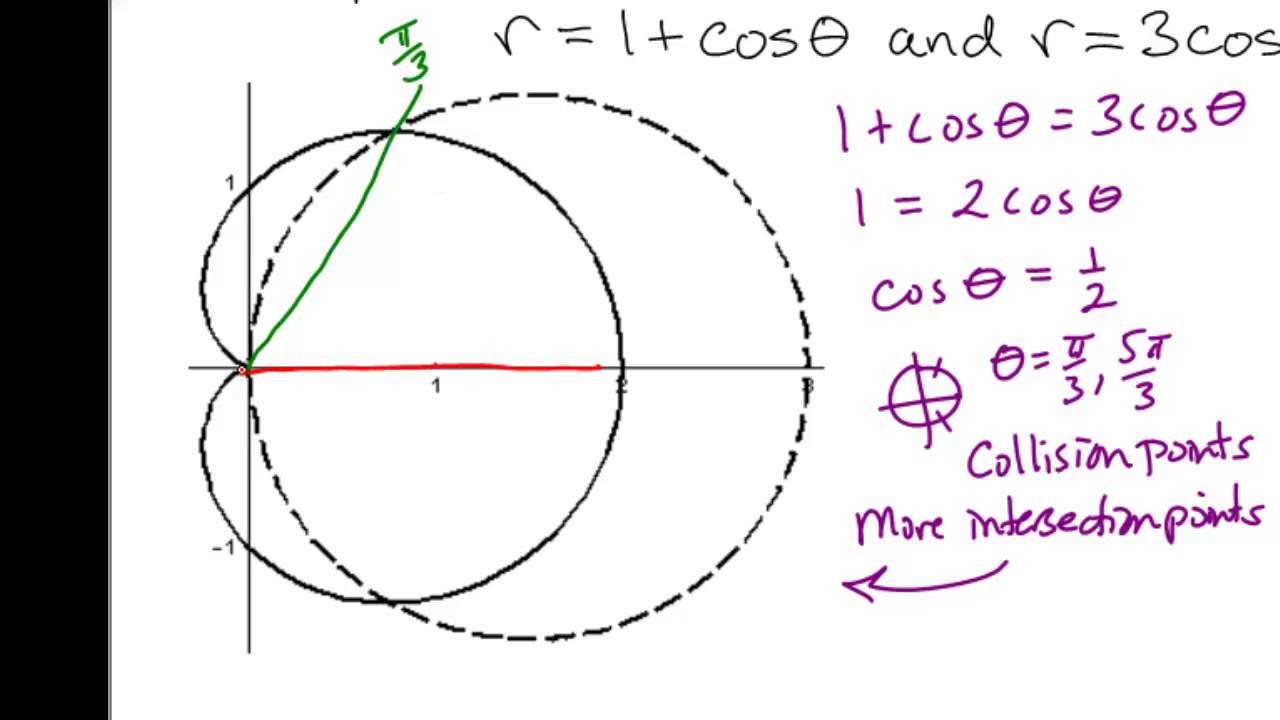 r = 1 + cosθ and r = 3cos
π/3
1 + cosθ = 3cosθ
1 = 2cosθ
cosθ = 1/2
θ = π/3, 5π/3
Collision points
More intersection points
1
-1
1
2
3